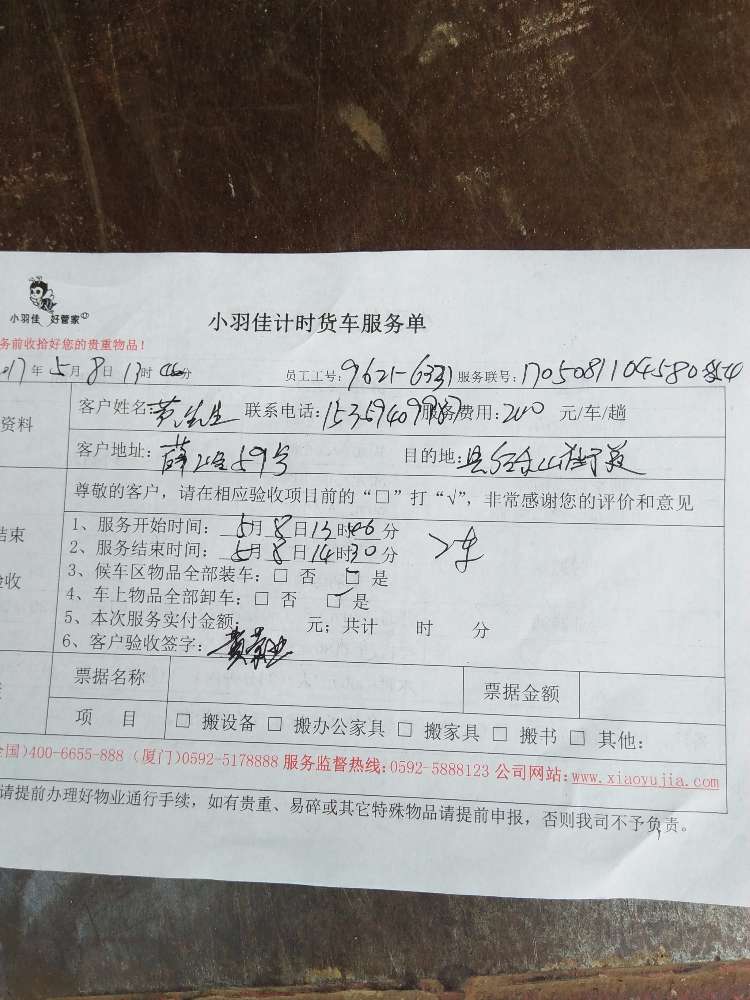 小羽佳 好管家
小羽佳计时货车服务单
务前收拾好您的贵重物品！
017年5月8日13时46分 员工工号：9621-6331 服务联号：1705081104580
资料 客户姓名：黄先生 联系电话：15359409987 服务费用：200 元/车/趟
客户地址：薛岭59号 目的地：
尊敬的客户，请在相应验收项目前的“□”打“√”，非常感谢您的评价和意见
结束
验收
1、服务开始时间：5月8日13时46分
2、服务结束时间：5月8日14时30分 2车
3、候车区物品全部装车：□ 否 □ 是
4、车上物品全部卸车：□ 否 □ 是
5、本次服务实付金额： 元；共计 时 分
6、客户验收签字：
票据名称 票据金额
项 目 □ 搬设备 □ 搬办公家具 □ 搬家具 □ 搬书 □ 其他：
全国)400-6655-888 (厦门)0592-5178888 服务监督热线:0592-5888123 公司网站:www.xiaoyujia.com
请提前办理好物业通行手续，如有贵重、易碎或其它特殊物品请提前申报，否则我司不予负责。